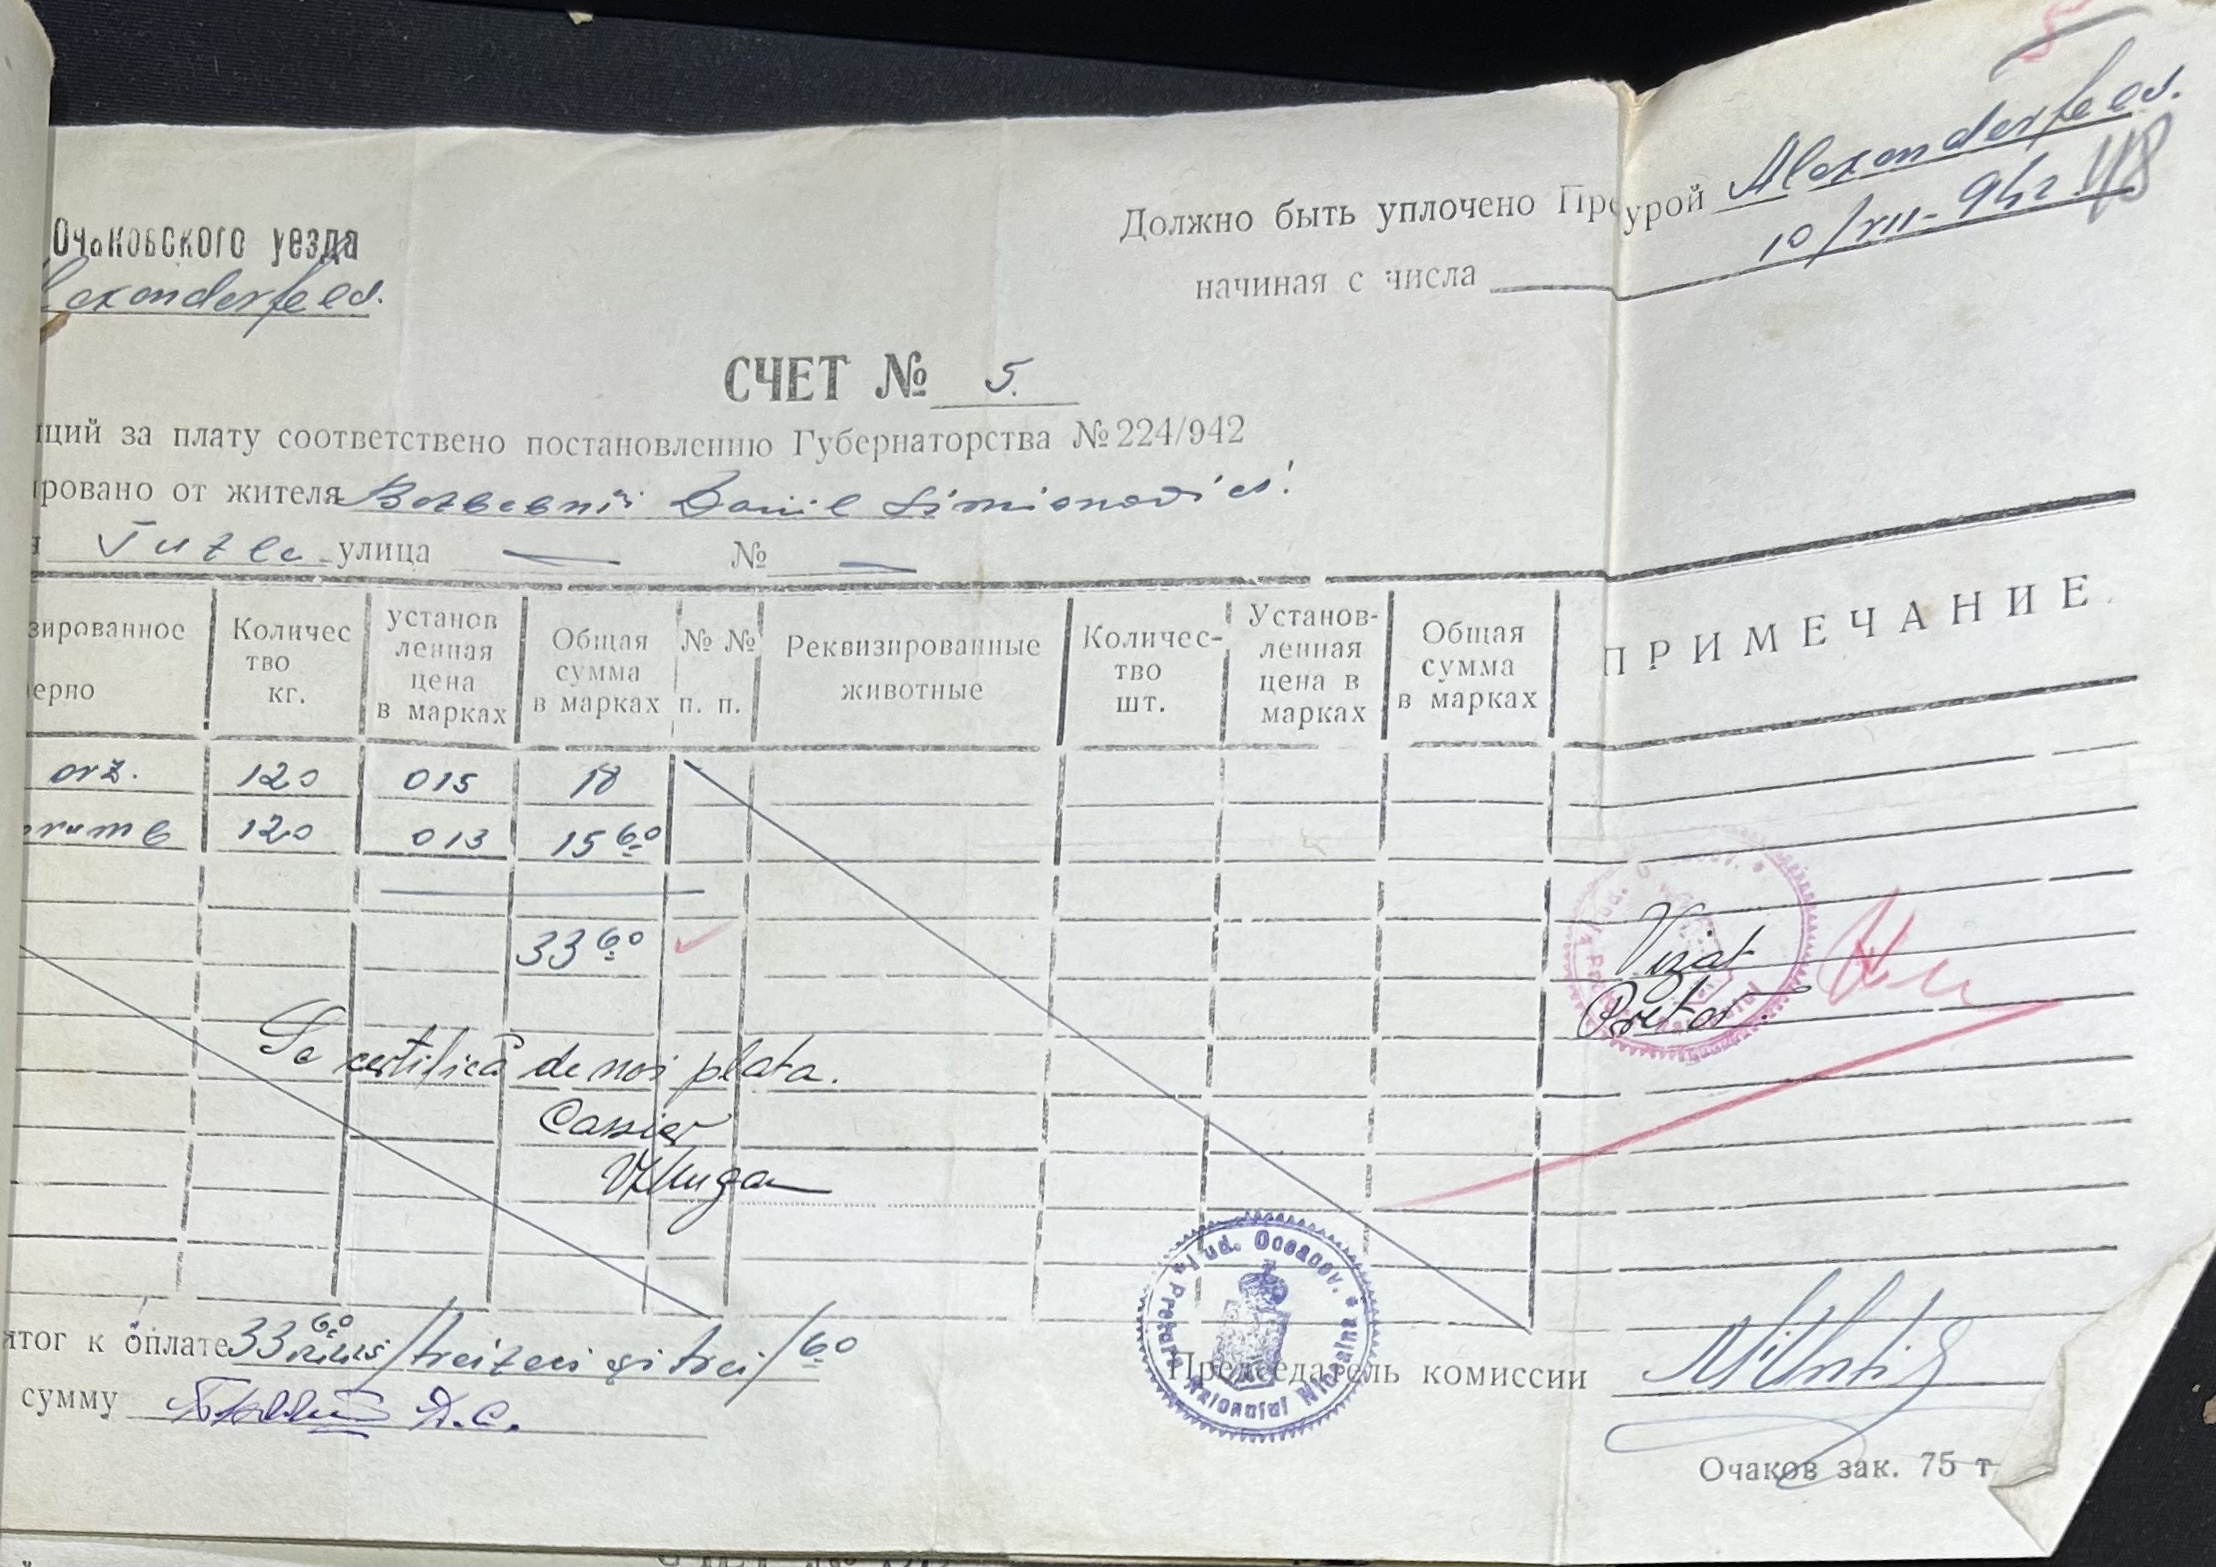 Очаковского уезда
lexanderfeld.
Должно быть уплочено Пре урой Alexanderfeld.
начиная с числа 10/VII-942
48
СЧЕТ № 5.
ций за плату соответствено постановлению Губернаторства № 224/942
ировано от жителя Daniil Simionovici
Tuzla улица — № —
зированное
ерно
Количес
тво
кг.
установ
ленная
цена
в марках
Общая
сумма
в марках
№ №
п. п.
Реквизированные
животные
Количес-
тво
шт.
Установ-
ленная
цена в
марках
Общая
сумма
в марках
ПРИМЕЧАНИЕ
orz. 120 015 18
120 013 15 60
33 60
Vizat
Pretor.
Se certifică de noi plata.
Cassier
Jud. Oceacov. * Pretura Raionului Nicoaina *
итог к оплате 33 60 /treizeci și trei/60
сумму
Председатель комиссии
Очаков зак. 75 т